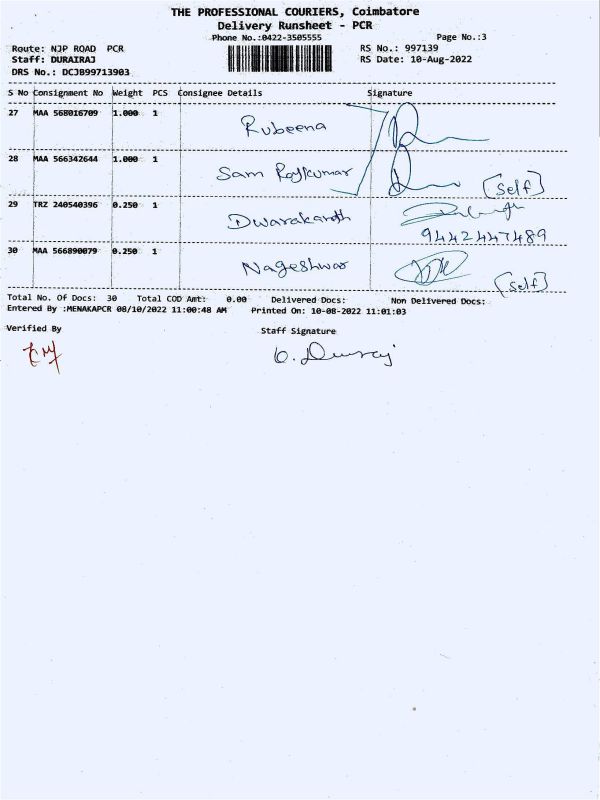 THE PROFESSIONAL COURIERS, Coimbatore
Delivery Runsheet - PCR
Phone No.:0422-3505555 Page No.:3
Route: NJP ROAD PCR RS No.: 997139
Staff: DURAIRAJ RS Date: 10-Aug-2022
DRS No.: DCJB99713903
S No Consignment No Weight PCS Consignee Details Signature
27 MAA 568016709 1.000 1 Rubeena
28 MAA 566342644 1.000 1 Sam Rajkumar [Self]
29 TRZ 240540396 0.250 1 Dwarakanth
9442447489
30 MAA 566890079 0.250 1 Nageshwar [Self]
Total No. Of Docs: 30 Total COD Amt: 0.00 Delivered Docs: Non Delivered Docs:
Entered By :MENAKAPCR 08/10/2022 11:00:48 AM Printed On: 10-08-2022 11:01:03
Verified By Staff Signature